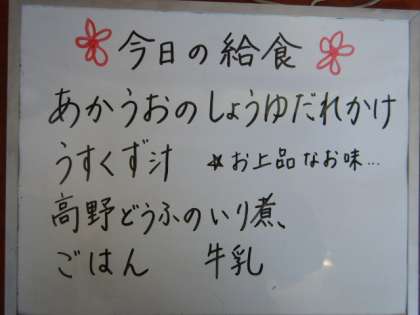 今日の給食
あかうおのしょうゆだれかけ
うすくず汁 ☆お上品なお味…
高野どうふのいり煮、
ごはん 牛乳